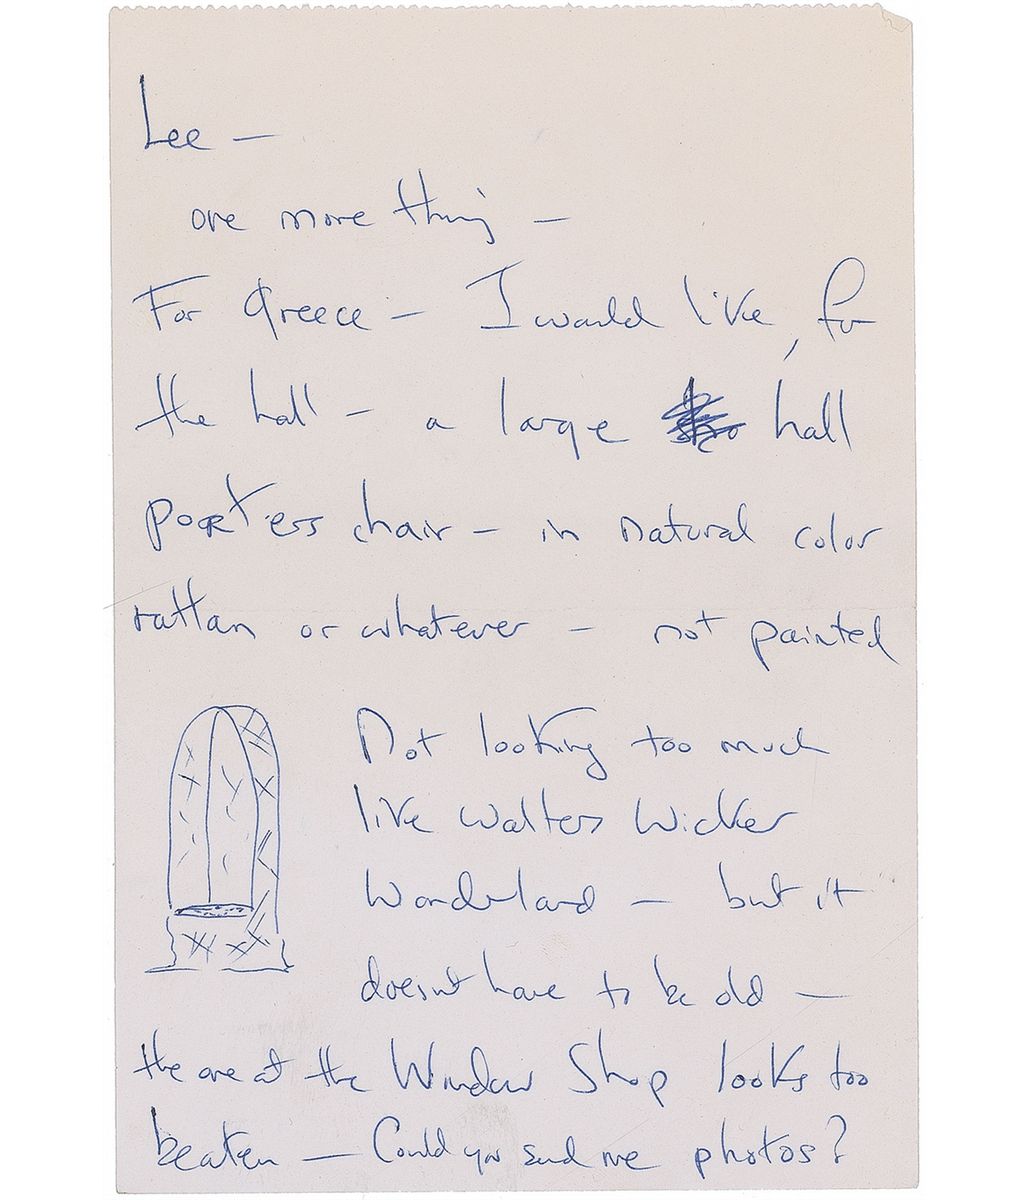 Lee —
one more thing —
For Greece — I would like, for
the hall — a large hall
porters chair — in natural color
rattan or whatever — not painted
Not looking too much
like Walters Wicker
Wonderland — but it
doesn't have to be old —
the one at the Window Shop looks too
beaten — Could you send me photos?